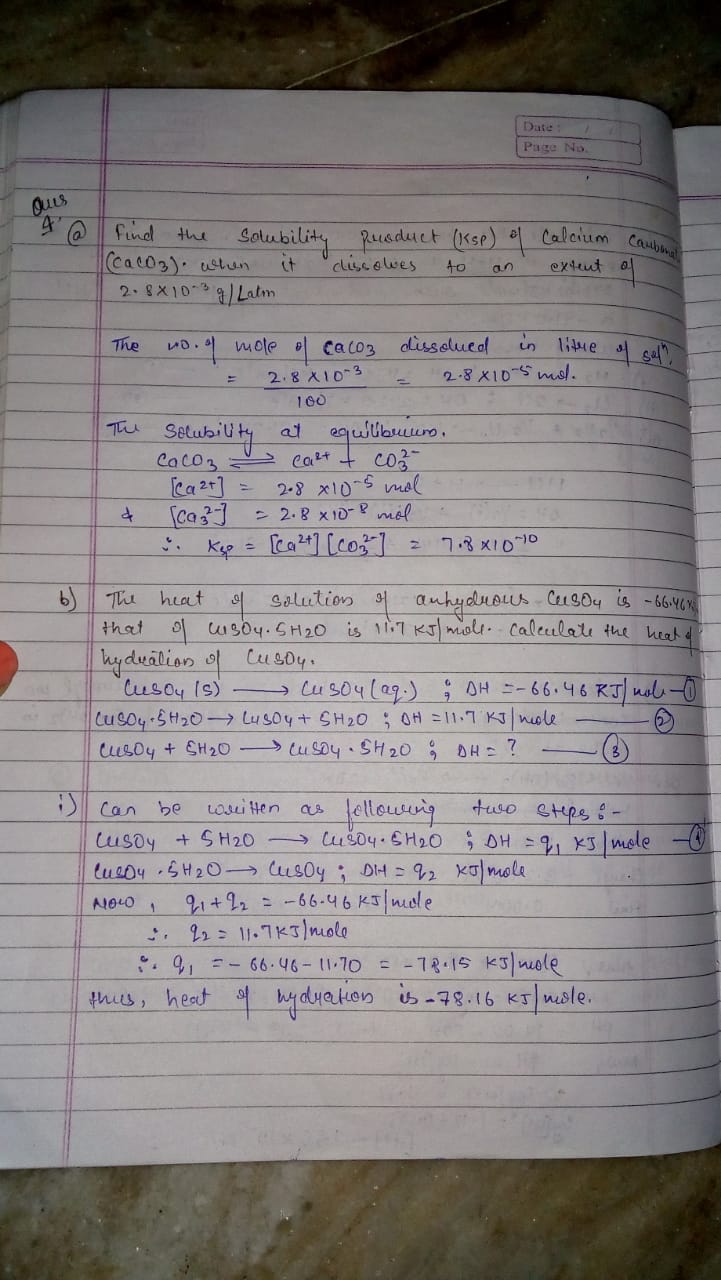 Date : / /
Page No.
Ans
4.
(a) Find the Solubility Product (Ksp) of Calcium Carbonat
(CaCO3). when it dissolves to an extent of
2.8X10-3 g/Latm
The no. of mole of CaCO3 dissolved in litre of soln.
= 2.8 X10-3 = 2.8 X10-5 mol.
100
The Solubility at equilibrium.
CaCO3 ⇌ Ca2+ + CO3 2-
[Ca2+] = 2.8 x10-5 mol
& [Ca3 2-] = 2.8 x10-8 mol
∴ Ksp = [Ca2+] [CO3 2-] = 7.8 x10-10
b) The heat of solution of anhydrous CuSO4 is -66.46 K
that of CuSO4.5H2O is 11.7 KJ/mole. Calculate the heat of
hydration of CuSO4.
CuSO4 (s) ⟶ CuSO4 (aq.) ; DH = -66.46 KJ/mole —①
CuSO4.5H2O → CuSO4 + 5H2O ; DH = 11.7 KJ/mole —②
CuSO4 + 5H2O ⟶ CuSO4 . 5H2O ; DH = ? —③
i) Can be written as following two steps :-
CuSO4 + 5H2O ⟶ CuSO4.5H2O ; DH = q1 KJ/mole —④
CuSO4 .5H2O ⟶ CuSO4 ; DH = q2 KJ/mole
Now , q1+q2 = -66.46 KJ/mole
∴ q2 = 11.7KJ/mole
∴ q1 = - 66.46 - 11.70 = -78.15 KJ/mole
thus, heat of hydration is -78.16 KJ/mole.